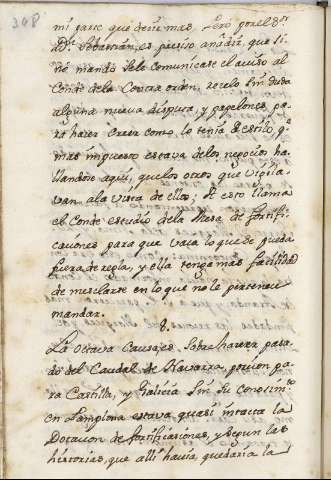 308
mi parte que decir mas. Pero por el S.r
D.n Sebastian, es preciso añadir, que si
no mando se le comunicase el aviso al
Conde de la Contra orden, recelo sin duda
alguna nueva disputa, y papelones pa
ra hacer creer como lo tenia de estilo, q.e
mas impuesto estava de los negocios ha
llandose aqui, que los otros que vigila
van a la vista de ellos; A esto llama
el Conde escudio de la Mesa de fortifi
caciones para que vaca lo que se pueda
fuera de regla, y ella tenga mas facilidad
de mesclarse en lo que no le pertenece
mandar.
8.
La Octava Causa, es sobre haverse pasa
do del Caudal de Navarra, porcion pa
ra Castilla, y Galicia sin su Conocim.to
en Pamplona estava quasi intacta la
Dotacion de fortificaciones, y segun las
historias, que alli havia, quedaria la